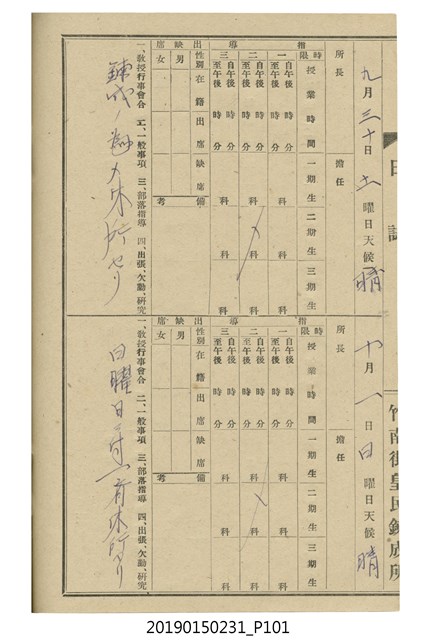 日誌
竹南街皇民鍊成所
九月三十日 土曜日天候 晴
所長 擔任
指導
時限 授業時間 一期生 二期生 三期生
一 自午後 時 分 至午後 時 分 科 科 科
二 自午後 時 分 至午後 時 分 科 科 科
三 自午後 時 分 至午後 時 分 科 科 科
出缺席
性別 在籍 出席 缺席 備考
男
女
一、敎授行事會合 二、一般事項 三、部落指導 四、出張、欠勤、研究
十月一日 日曜日天候 晴
所長 擔任
指導
時限 授業時間 一期生 二期生 三期生
一 自午後 時 分 至午後 時 分 科 科 科
二 自午後 時 分 至午後 時 分 科 科 科
三 自午後 時 分 至午後 時 分 科 科 科
出缺席
性別 在籍 出席 缺席 備考
男
女
一、敎授行事會合 二、一般事項 三、部落指導 四、出張、欠勤、研究
日曜日
20190150231_P101